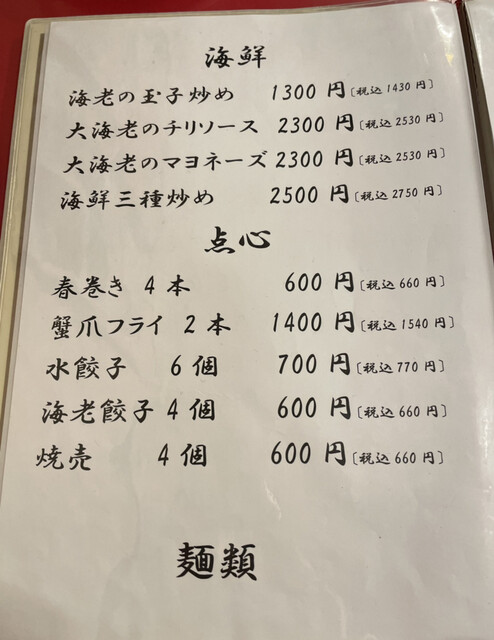 海鮮
海老の玉子炒め 1300 円〔税込 1430 円〕
大海老のチリソース 2300 円〔税込 2530 円〕
大海老のマヨネーズ 2300 円〔税込 2530 円〕
海鮮三種炒め 2500 円〔税込 2750 円〕
点心
春巻き 4 本 600 円〔税込 660 円〕
蟹爪フライ 2 本 1400 円〔税込 1540 円〕
水餃子 6 個 700 円〔税込 770 円〕
海老餃子 4 個 600 円〔税込 660 円〕
焼売 4 個 600 円〔税込 660 円〕
麺類